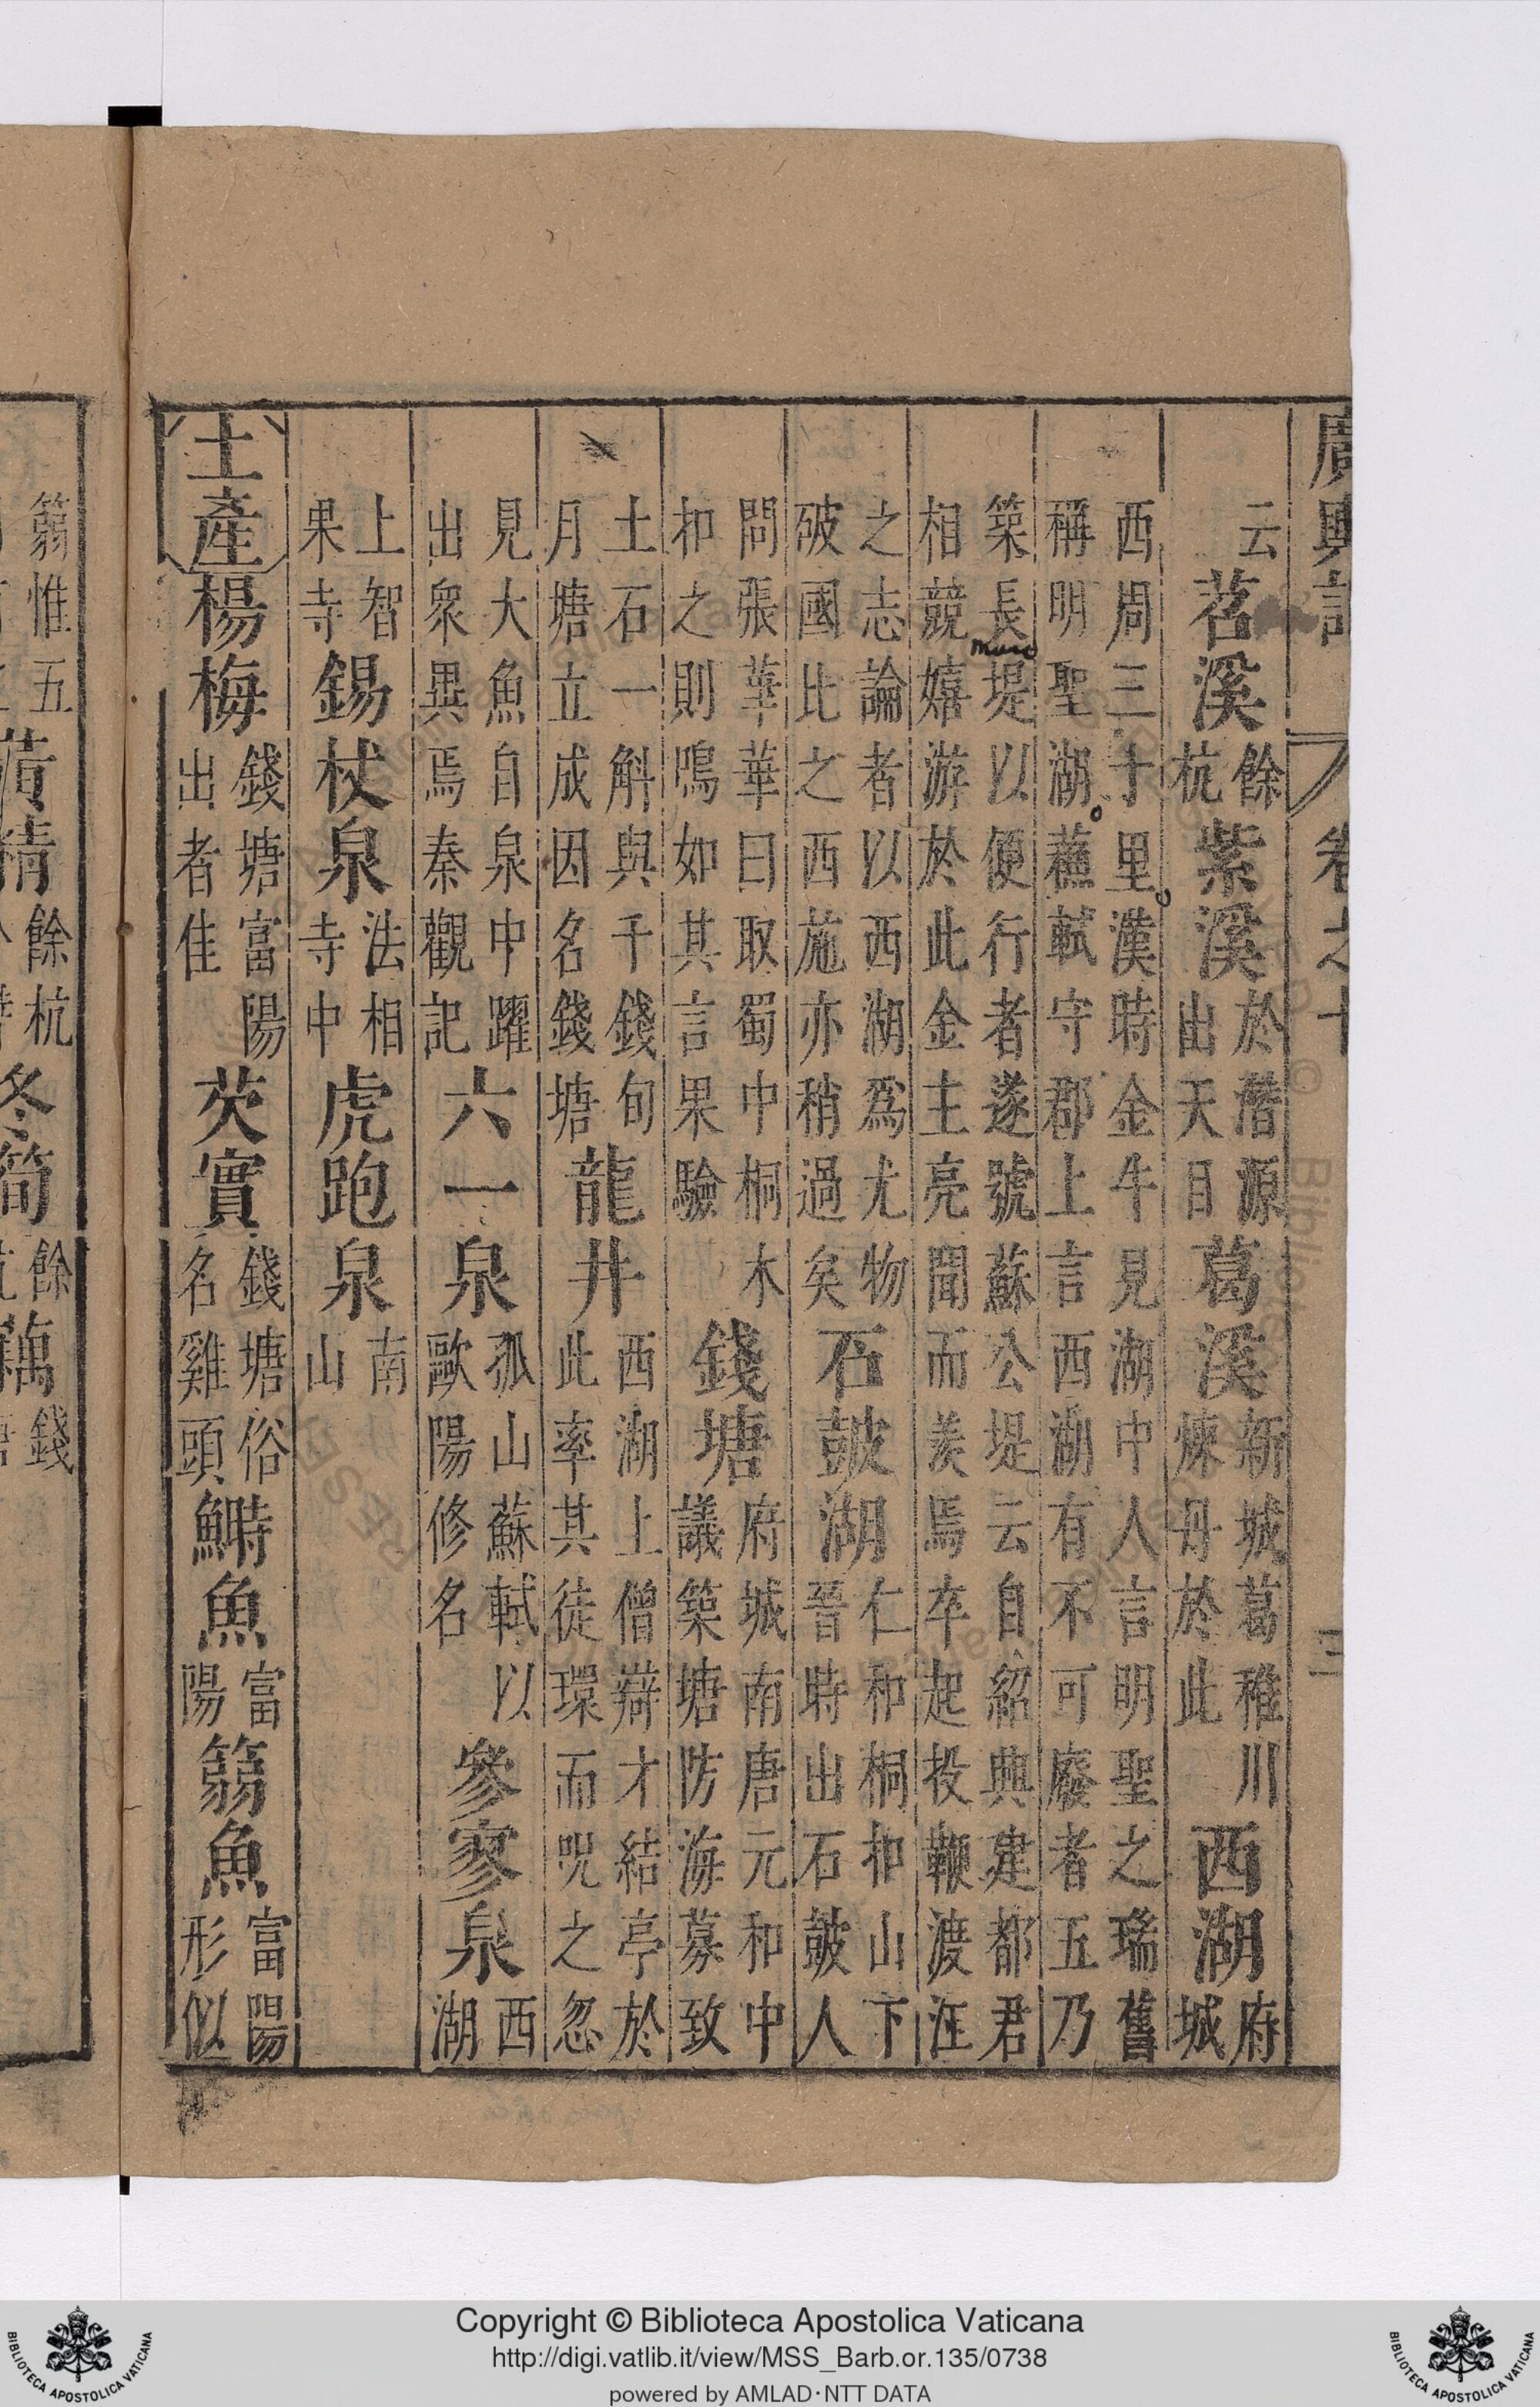 廣輿記 卷之十 三
云苕溪餘杭紫溪於潛源出天目葛溪新城葛稚川煉丹於此西湖府城
西周三十里漢時金牛見湖中人言明聖之瑞舊
稱明聖湖蘇軾守郡上言西湖有不可廢者五乃
築長堤以便行者遂號蘇公堤云自紹興建都君
相競嬉游於此金主亮聞而羨焉卒起投鞭渡江
之志論者以西湖爲尤物破國比之西施亦稍過矣石鼓湖仁和桐扣山下晉時出石鼓人
問張華華曰取蜀中桐木扣之則鳴如其言果驗錢塘府城南唐元和中議築塘防海募致
土石一斛與千錢旬月塘立成因名錢塘龍井西湖上僧辯才結亭於此率其徒環而呪之忽
見大魚自泉中躍出衆異焉秦觀記六一泉孤山蘇軾以歐陽修名參寥泉西湖
上智果寺錫杖泉法相寺中虎跑泉南山
土產楊梅錢塘富陽出者佳芡實錢塘俗名雞頭鰣魚富陽篛魚富陽形似
篛惟五 精餘杭冬筍餘杭藕錢
Copyright © Biblioteca Apostolica Vaticana
http://digi.vatlib.it/view/MSS_Barb.or.135/0738
powered by AMLAD·NTT DATA
BIBLIOTECA APOSTOLICA VATICANA
BIBLIOTECA APOSTOLICA VATICANA